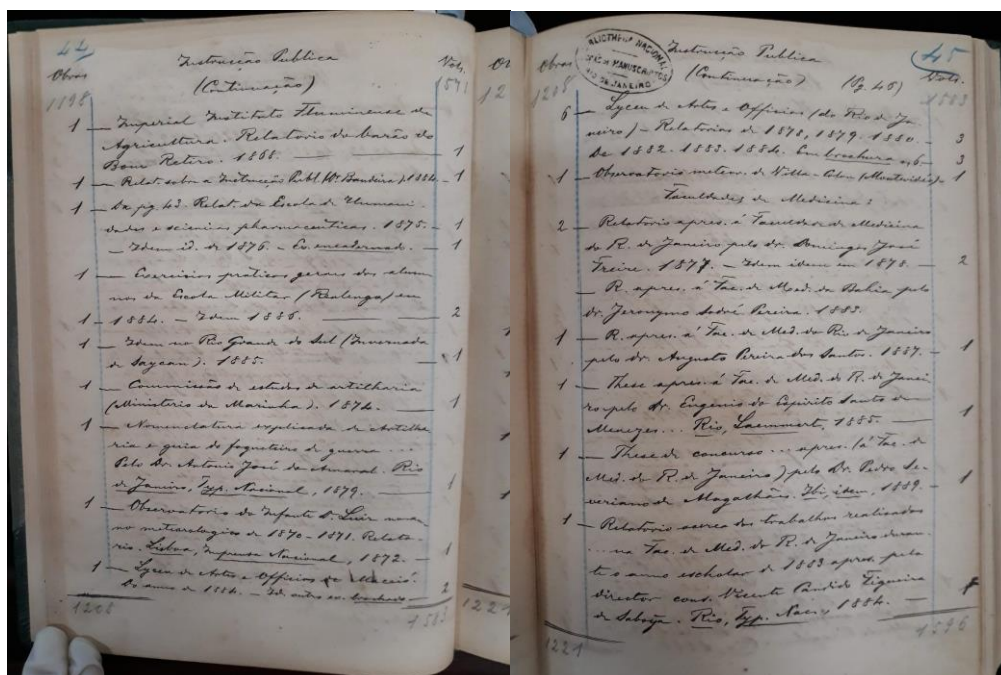 44
Instrucção Publica
Obras
Vols.
(Continuação)
1198
1571
1 — Imperial Instituto Fluminense de
Agricultura. Relatorio do barão do
Bom Retiro. 1868. — 1
1 — Relat. sobre a Instrucção Publ. Bandeira, 1884 — 1
1 — Da pg. 43. Relat. da Escola de Humani-
dades e sciencias pharmaceuticas. 1875. — 1
— Idem id. de 1876. — Ex. encadernado. — 1
1 — Exercicios práticos geraes dos alum-
nos da Escola Militar (Realengo) em
1 — 1884. — Idem 1886. — 2
1 — Idem no Rio Grande do Sul (Invernada
de Saycan). 1885. — 1
1 — Commissão de estudos de artilharia
(Ministerio da Marinha). 1874. — 1
1 — Nomenclatura explicada de Artilhe-
ria e guia do fogueteiro de guerra ...
Pelo Dr. Antonio José do Amaral. Rio
de Janeiro, Typ. Nacional, 1879. — 1
1 — Observatorio do Infante D. Luiz
no meteorologico de 1870-1871. Relato-
rio. Lisboa, Imprensa Nacional, 1872. — 1
1 — Lyceu de Artes e Officios de Maceió.
Do anno de 1884. — Id. outro ex. brochado — 2
1208
1583
BIBLIOTHECA NACIONAL
SECÇÃO DE MANUSCRIPTOS
RIO DE JANEIRO
Instrucção Publica
45
Obras
(Continuação)
(Pg. 46)
Vols.
1208
1583
6 — Lyceu de Artes e Officios (do Rio de Ja-
neiro) — Relatorios de 1878, 1879. 1880. — 3
De 1882. 1883. 1884. Em brochura — 3
1 — Observatorio meteor. de Villa-Colon (Montevidéo) — 1
Faculdades de Medicina:
2 — Relatorio apres. á Faculdade de Medicina
do R. de Janeiro pelo dr. Domingos José
Freire. 1877. — Idem idem em 1878. — 2
— R. apres. á Fac. de Med. da Bahia pelo
dr. Jeronymo Sodré Pereira. 1883.
1 — R. apres. á Fac. de Med. do Rio de Janeiro
pelo dr. Augusto Pereira dos Santos. 1887. — 1
1 — These apres. á Fac. de Med. do R. de Janei-
ro pelo dr. Eugenio do Espirito Santo de
Menezes... Rio, Laemmert, 1885. — 1
1 — These de concurso ... apres. (á Fac. de
Med. do R. de Janeiro) pelo Dr. Pedro Se-
veriano de Magalhães. Ibi, idem, 1889. — 1
1 — Relatorio acerca dos trabalhos realisados
... na Fac. de Med. do R. de Janeiro duran-
te o anno escholar de 1883 apres. pelo
director cons. Vicente Candido Figueira
de Saboia. Rio, Typ. Nac., 1884. —
1221
1596